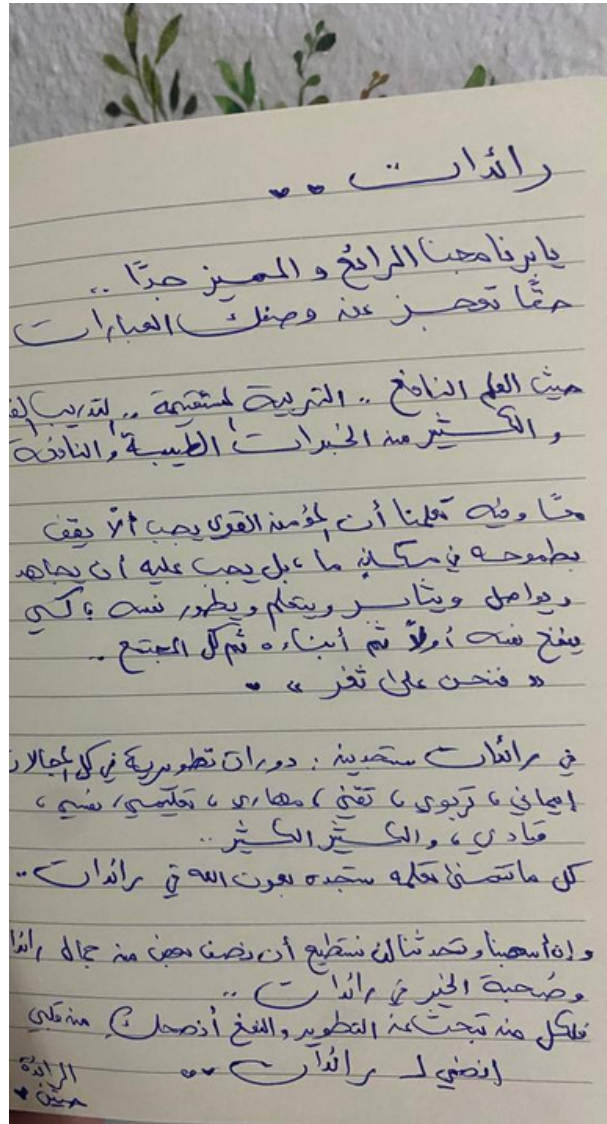 رائدات ..
يا برنامجنا الرائع و المميز جدًا ..
حقًا تعجز عن وصفك العبارات
حيث العلم النافع .. التربية المستقيمة .. التدريب
و الكثير من الخبرات الطيبة والنافعة
معًا وفيه تعلمنا أن المؤمن القوي يجب ألّا يقف
بطموحه في مكانٍ ما ، بل يجب عليه أن يجاهد
ويواصل ويثابر ويتعلم ويطور نفسه ، كي
ينفع نفسه أولاً ثم أبناءه ثم كل المجتمع ..
" فنحن على ثغر "
في رائدات ستجدين : دورات تطويرية في كل المجالات
إيماني ، تربوي ، تقني ، مهاري ، تعليمي ، نفسي ،
قيادي ، والكثير الكثير ..
كل ما تتمنى تعلمه ستجده بعون الله في رائدات ..
و إن أسهبنا وتحدثنا لن نستطيع أن نصف بعض من جمال
وصُحبة الخير في رائدات ..
فلكل من تبحث عن التطوير والنفع أنصحكِ من قلبي
انضمي لـ رائدات ..
الرائدة
حنين